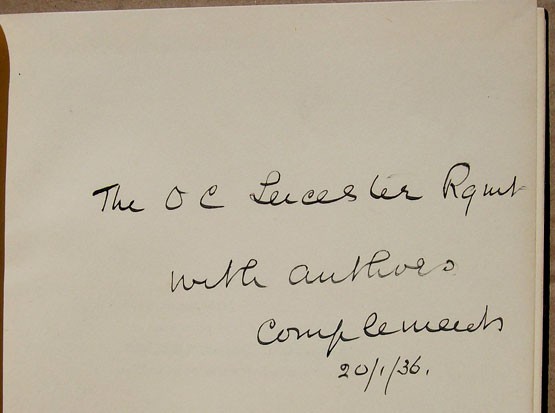 The O C Leicester Rgmt
with authors
Complements
20/1/36.